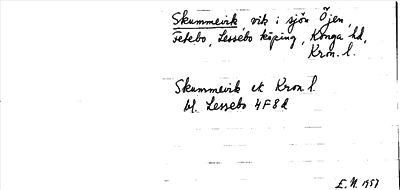 Skummevik, vik i sjön Öjen,
Tetebo, Lessebo köping, Konga hd,
Kron. l.
Skummevik ek Kron l.
bl. Lessebo 4F8d
E. N. 1957